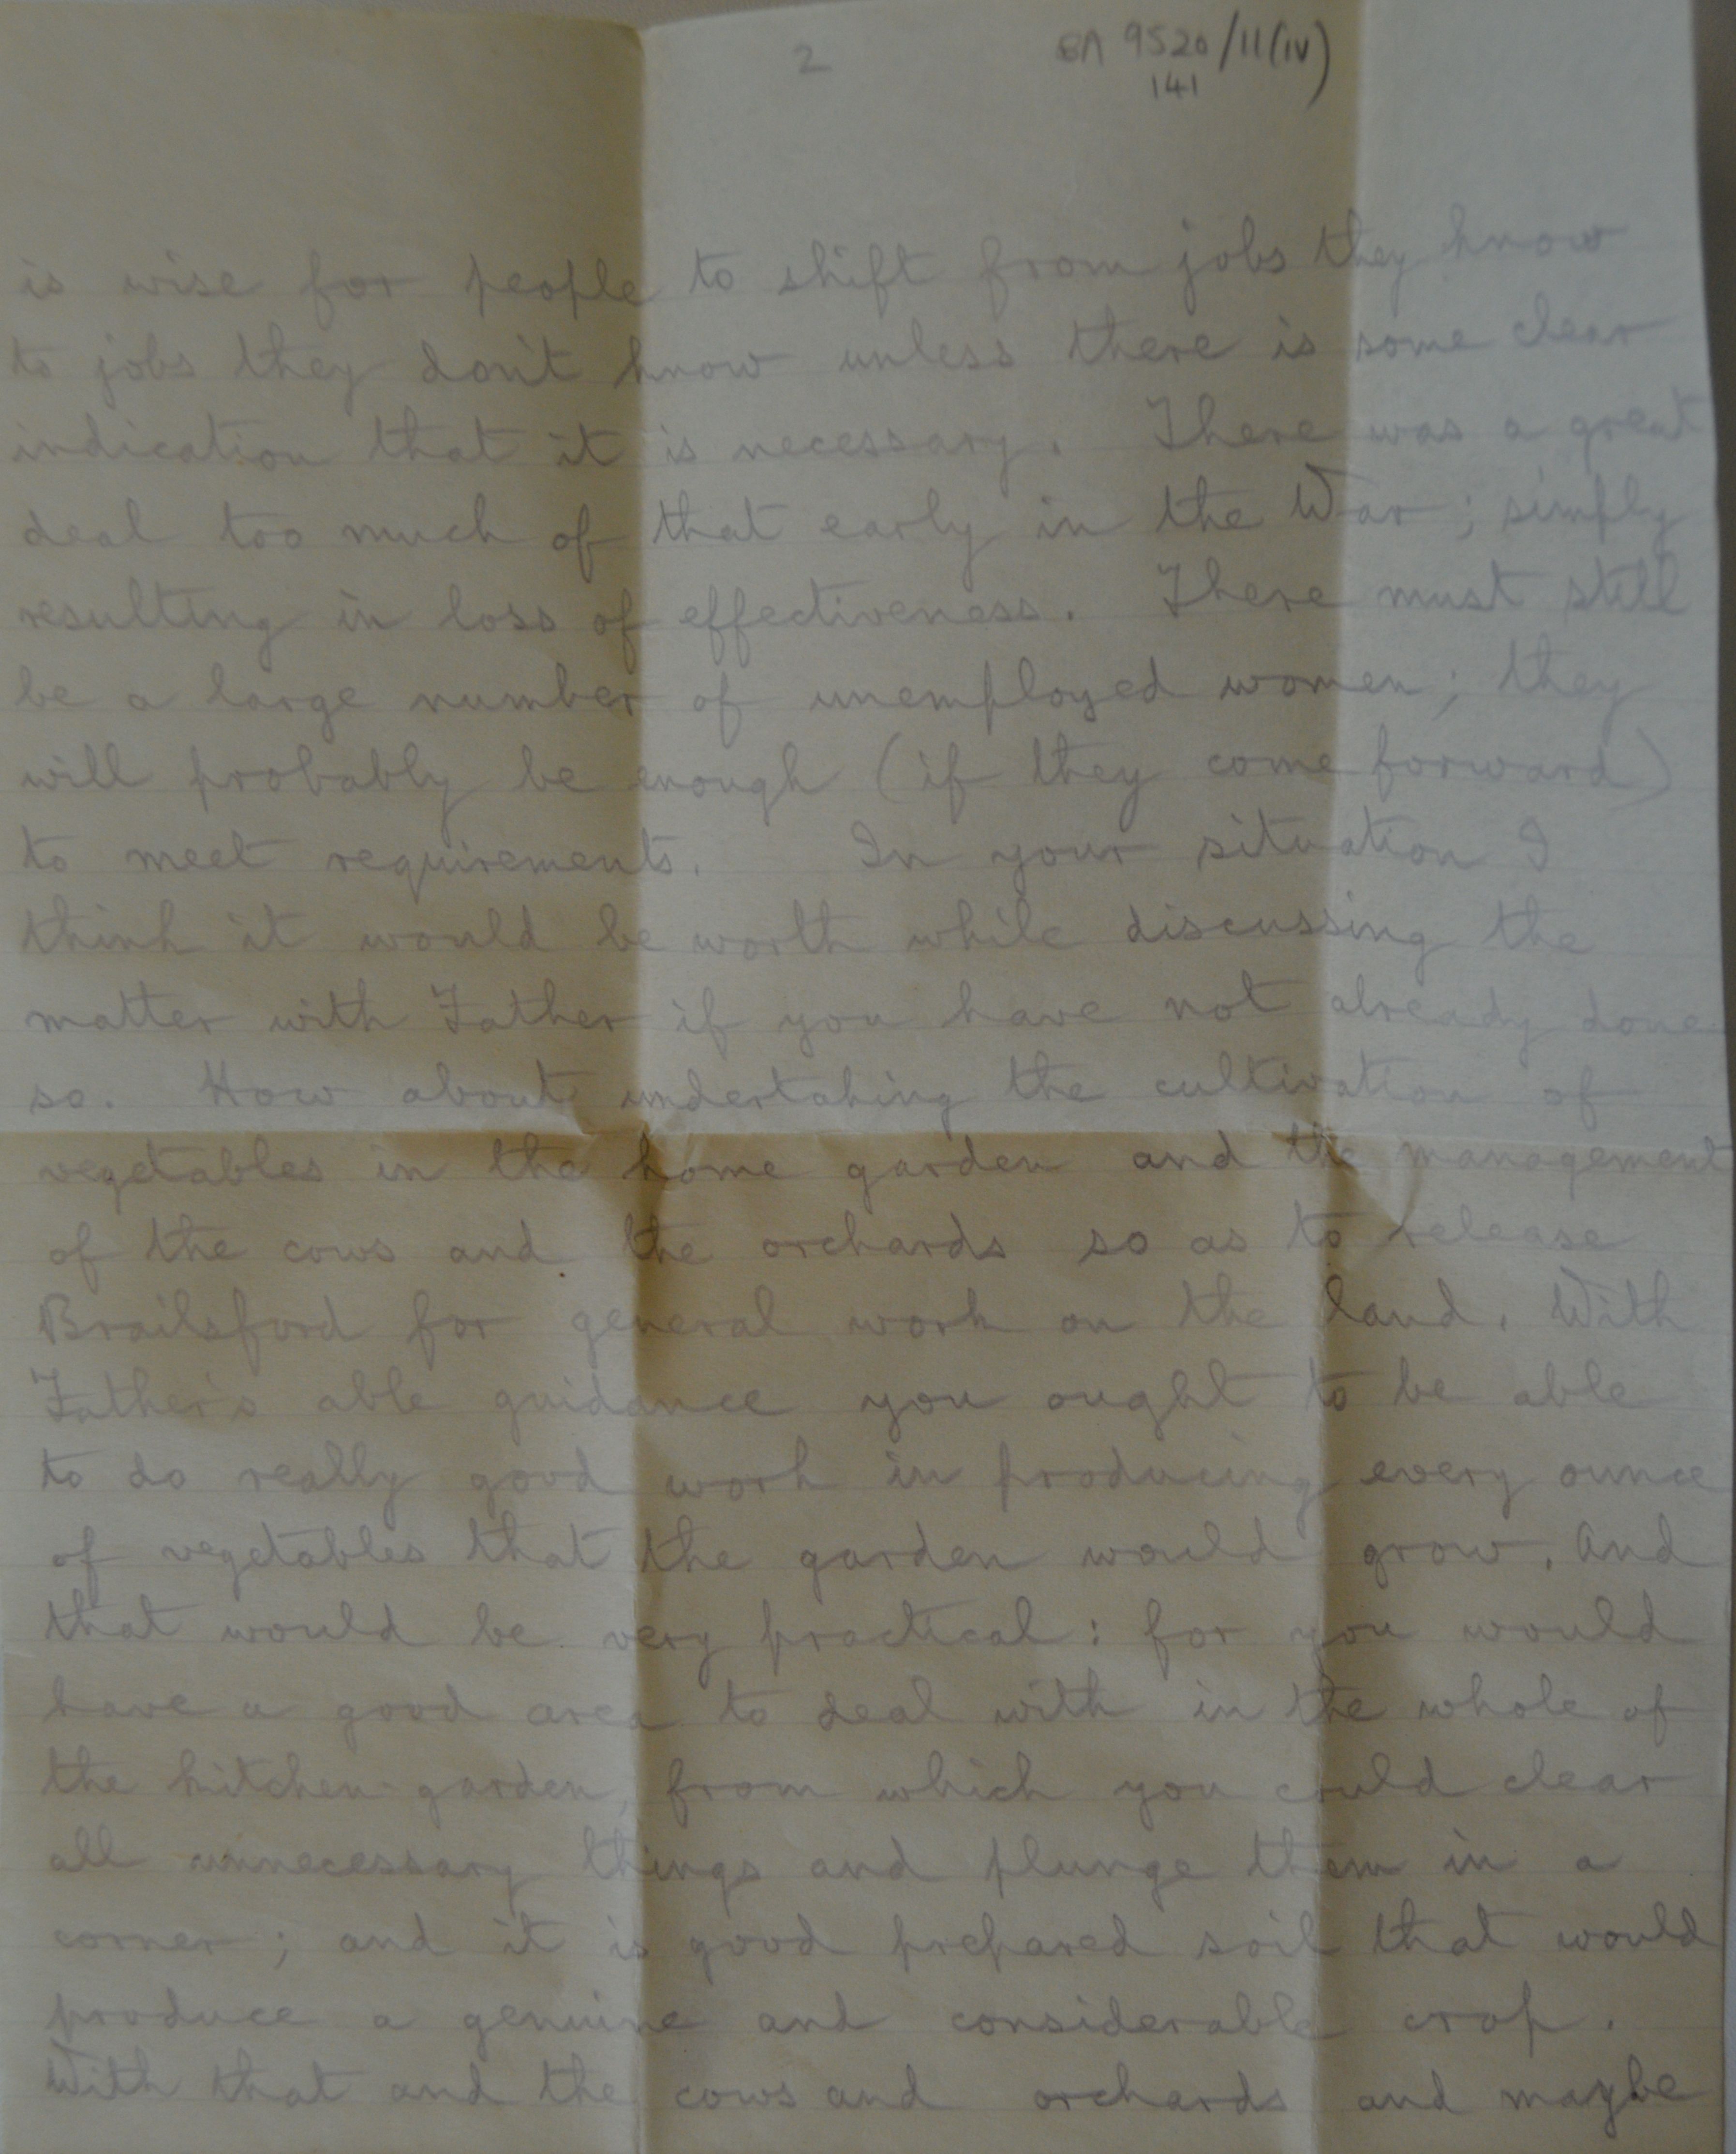 2
BA 9520/11(iv)
141
is wise for people to shift from jobs they know
to jobs they don't know unless there is some clear
indication that it is necessary. There was a great
deal too much of that early in the War; simply
resulting in loss of effectiveness. There must still
be a large number of unemployed women; they
will probably be enough (if they come forward)
to meet requirements. In your situation I
think it would be worth while discussing the
matter with Father if you have not already done
so. How about undertaking the cultivation of
vegetables in the home garden and the management
of the cows and the orchards so as to release
Brailsford for general work on the land. With
Father's able guidance you ought to be able
to do really good work in producing every ounce
of vegetables that the garden would grow. And
that would be very practical: for you would
have a good area to deal with in the whole of
the kitchen-garden, from which you could clear
all unnecessary things and plunge them in a
corner; and it is good prepared soil that would
produce a genuine and considerable crop.
With that and the cows and orchards and maybe